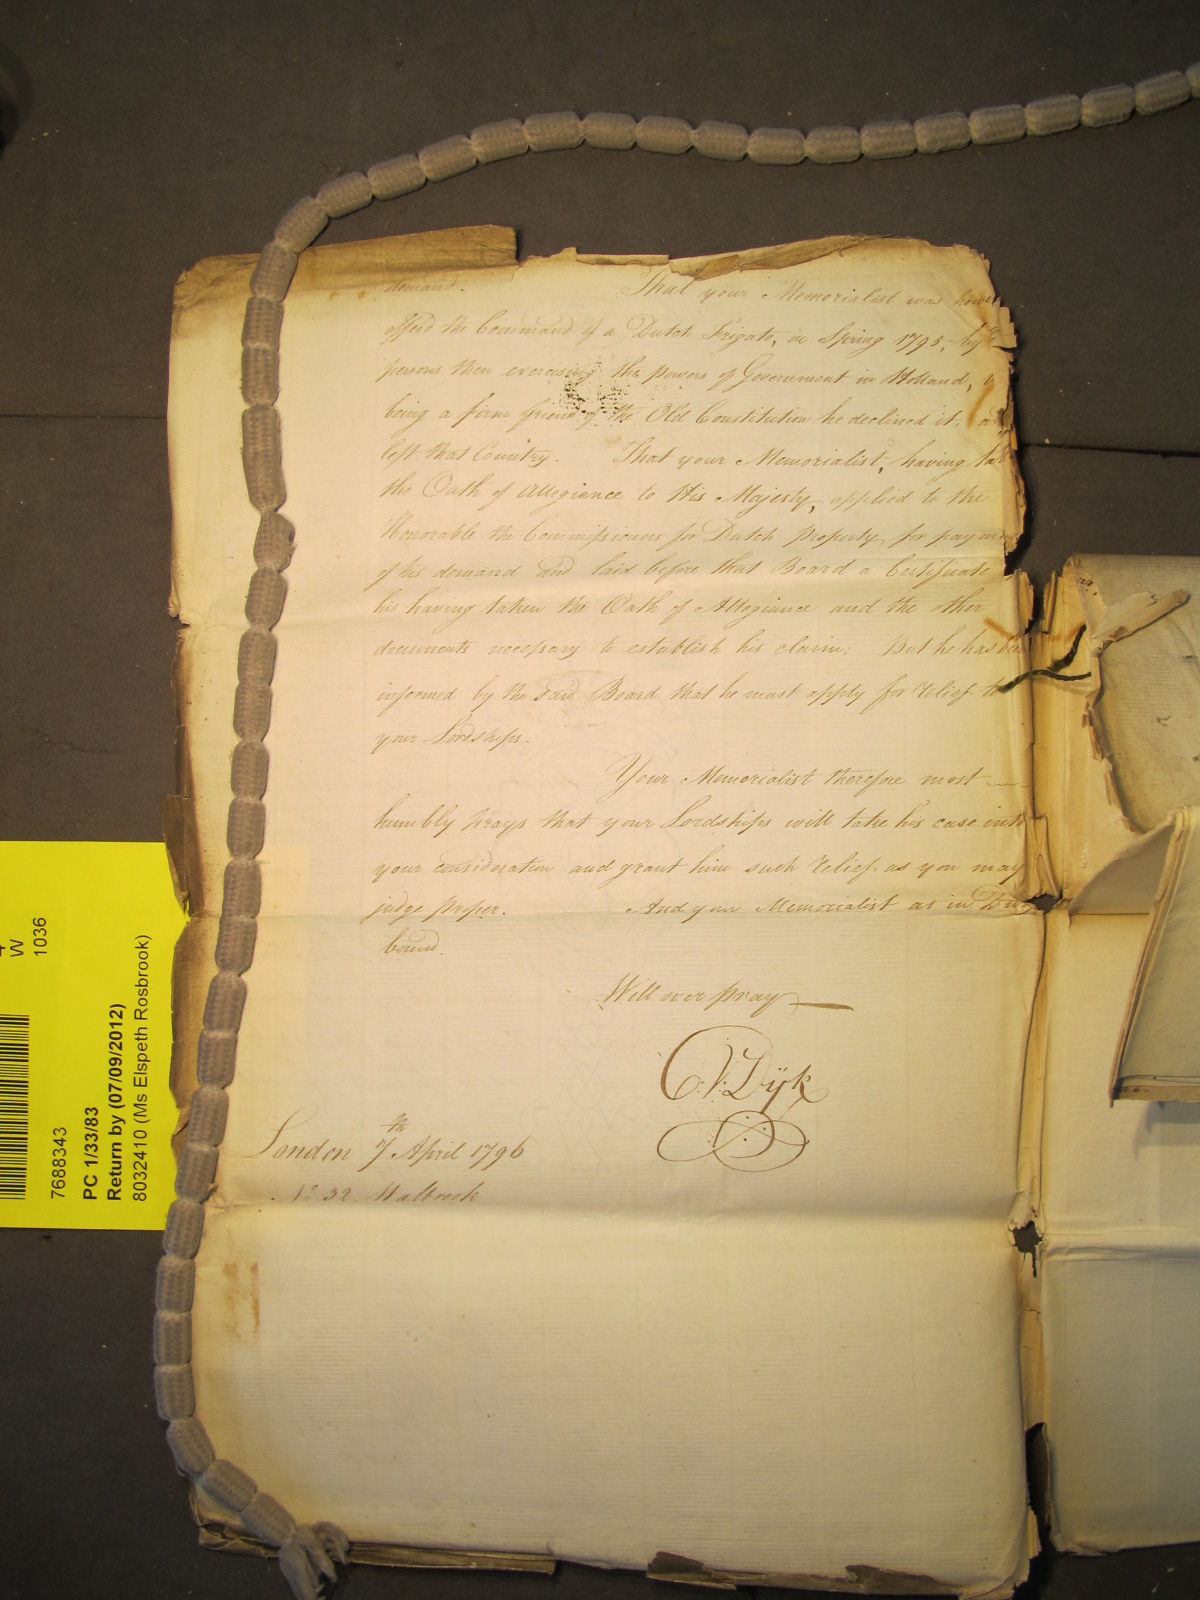 demand. That your Memorialist was howev
offerd the Command of a Dutch Frigate, in Spring 1795, by
persons then exercising the powers of Government in Holland,
being a firm friend of the Old Constitution he declined it,
left that Country. That your Memorialist, having ta
the Oath of Allegiance to His Majesty, applied to the
Honorable the Commissioners for Dutch Property, for paym
of his demand and laid before that Board a Certificate
his having taken the Oath of Allegiance and the other
documents necessary to establish his claim; But he has been
informed by the said Board that he must apply for relief to
your Lordships.
Your Memorialist therefore most
humbly prays that your Lordships will take his case into
your consideration and grant him such relief as you may
judge proper. And your Memorialist as in Duty
bound.
Will ever pray
V: Dÿk
London 7th April 1796
No 32 Walbrook
W
1036
7688343
PC 1/33/83
Return by (07/09/2012)
8032410 (Ms Elspeth Rosbrook)